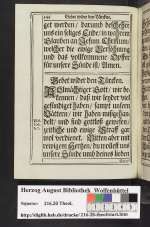 144 Gebet wider den Türcken.
get werden / darumb bescher
uns ein seliges Ende / in wahrem
Glauben an Jesum Christum /
welcher die ewige Versöhnung
und das vollkommene Opffer
für unsere Sünde ist / Amen.
Gebet wider den Türcken.
Allmächtiger Gott / wir be-
kennen / daß wir leyder viel
gesündiget haben / sampt unsern
Vättern / wir haben mißgehan-
delt / und sind gottloß gewesen /
zeitliche und ewige Straff gar
wol verdienet. Bitten aber mit
ewigem Hertzen / du wollest uns
unsere Sünde und deines lieben
Herzog August Bibliothek Wolfenbüttel
Signatur: 216.20 Theol.
http://diglib.hab.de/drucke/216-20-theol/start.htm